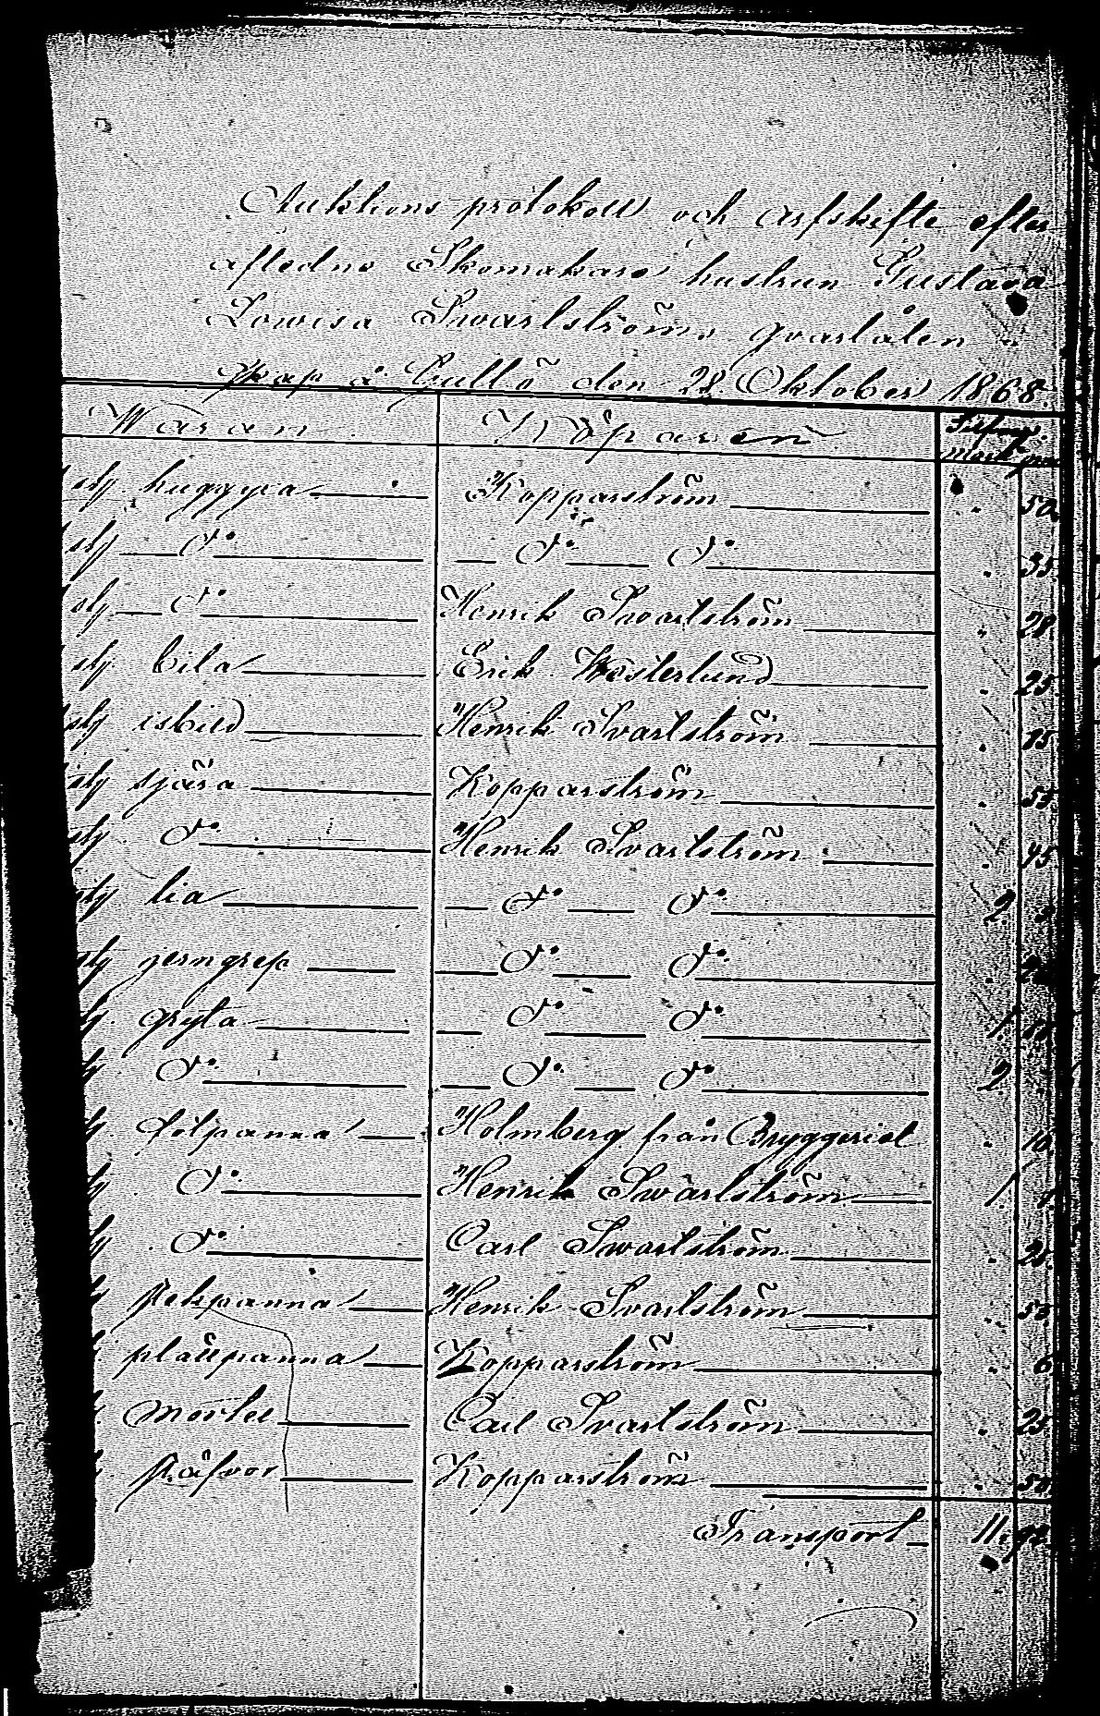 Auktions protokoll och arfskifte efter
afledne Skomakare hustrun Gustava
Lowisa Swartström qvarlåten
skap å Gullö den 28 Oktober 1868.
Waran Köparen
st huggyxa Kopparström " 50
st d:o d:o d:o " 35
st d:o Henrik Svartström "
st bila Erik Westerlund " 25
st isbill Henrik Svartström " 15
st sjära Kopparström "
st d:o Henrik Svartström " 45
st lia d:o d:o 2
st jerngrep d:o d:o "
st gryta d:o d:o 1
d:o d:o d:o 2 "
fotpanna Holmberg från Bryggeriet "
d:o Henrik Swartström 1
d:o Carl Swartström "
stekpanna Henrik Svartström "
plättpanna Kopparström "
Mortel Carl Svartström " 25
Kopparström " 50
Transport 11